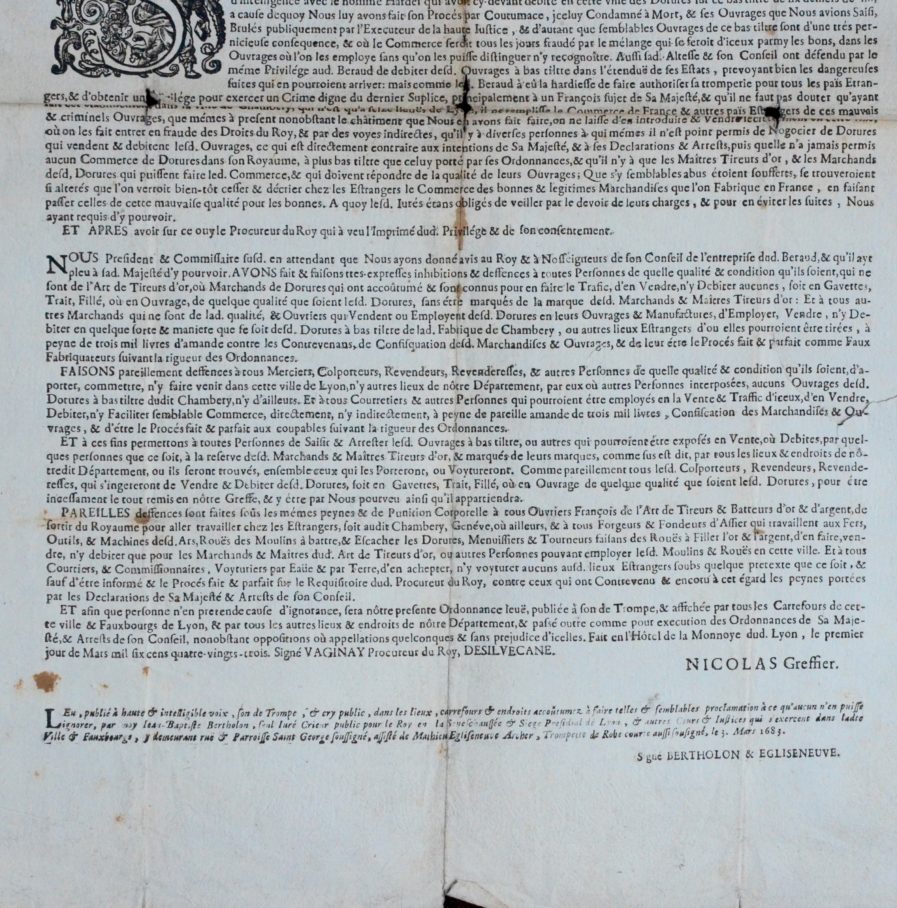 d'intelligence avec le nommé Hardel qui avoit cy-devant debité en cette ville des Dorures sur ce bas tiltre
a cause dequoy Nous luy avons fait son Procés par Coutumace, jceluy Condamné à Mort, & ses Ouvrages que Nous avions Saisi,
Brulés publiquement par l'Executeur de la haute Justice, & d'autant que semblables Ouvrages de ce bas tiltre sont d'une trés per-
nicieuse consequence, & où le Commerce seroit tous les jours fraudé par le mélange qui se feroit d'iceux parmy les bons, dans les
Ouvrages où l'on les employe sans qu'on les puisse distinguer n'y recognoître. Aussi sad. Altesse & son Conseil ont défendu par le
méme Privilége aud. Beraud de debiter desd. Ouvrages à bas tiltre dans l'étenduë de ses Estats, prevoyant bien les dangereuses
suites qui en pourroient arriver: mais comme led. Beraud à eû la hardiesse de faire authoriser sa tromperie pour tous les païs Etran-
gers, & d'obtenir un Privilége pour exercer un Crime digne du dernier Suplice, principalement à un François sujet de Sa Majesté, & qu'il ne faut pas douter qu'ayant
il ne remplisse le Commerce de France & autres païs Estrangers de ces mauvais
& criminels Ouvrages, que mémes à present nonobstant le châtiment que Nous en avons fait faire, on ne laisse d'en introduire & Vendre
où on les fait entrer en fraude des Droits du Roy, & par des voyes indirectes, qu'il y à diverses personnes à qui mémes il n'est point permis de Negocier de Dorures
qui vendent & debitent lesd. Ouvrages, ce qui est directement contraire aux intentions de Sa Majesté, & à ses Declarations & Arrests, puis quelle n'a jamais permis
aucun Commerce de Dorures dans son Royaume, à plus bas tiltre que celuy porté par ses Ordonnances, & qu'il n'y à que les Maîtres Tireurs d'or, & les Marchands
desd. Dorures qui puissent faire led. Commerce, & qui doivent répondre de la qualité de leurs Ouvrages; Que s'y semblables abus étoient soufferts, se trouveroient
si alterés que l'on verroit bien-tôt cesser & décrier chez les Estrangers le Commerce des bonnes & legitimes Marchandises que l'on Fabrique en France, en faisant
passer celles de cette mauvaise qualité pour les bonnes. A quoy lesd. Iurés étans obligés de veiller par le devoir de leurs charges, & pour en éviter les suites, Nous
ayant requis d'y pourvoir.
ET APRES avoir sur ce ouy le Procureur du Roy qui à veu l'Imprimé dud. Privilége & de son consentement.
NOUS President & Commissaire susd. en attendant que Nous ayons donné avis au Roy & à Nosseigneurs de son Conseil de l'entreprise dud. Beraud, & qu'il aye
pleu à sad. Majesté d'y pourvoir. AVONS fait & faisons tres-expresses inhibitions & deffences à toutes Personnes de quelle qualité & condition qu'ils soient, qui ne
sont de l'Art de Tireurs d'or, où Marchands de Dorures qui ont accoûtumé & sont connus pour en faire le Trafic, d'en Vendre, n'y Debiter aucunes, soit en Gavettes,
Trait, Fillé, où en Ouvrage, de quelque qualité que soient lesd. Dorures, sans étre marqués de la marque desd. Marchands & Maîtres Tireurs d'or: Et à tous au-
tres Marchands qui ne sont de lad. qualité, & Ouvriers qui Vendent ou Employent desd. Dorures en leurs Ouvrages & Manufactures, d'Employer, Vendre, n'y De-
biter en quelque sorte & maniere que se soit desd. Dorures à bas tiltre de lad. Fabrique de Chambery, ou autres lieux Estrangers d'ou elles pourroient étre tirées, à
peyne de trois mil livres d'amande contre les Contrevenans, de Confisquation desd. Marchandises & Ouvrages, & de leur étre le Procés fait & parfait comme Faux
Fabriquateurs suivant la rigueur des Ordonnances.
FAISONS pareillement deffences à tous Merciers, Colporteurs, Revendeurs, Revenderesses, & autres Personnes de quelle qualité & condition qu'ils soient, d'a-
porter, commettre, n'y faire venir dans cette ville de Lyon, n'y autres lieux de nôtre Département, par eux où autres Personnes interposées, aucuns Ouvrages desd.
Dorures à bas tiltre dudit Chambery, n'y d'ailleurs. Et à tous Courretiers & autres Personnes qui pourroient étre employés en la Vente & Traffic d'iceux, d'en Vendre,
Debiter, n'y Faciliter semblable Commerce, directement, n'y indirectement, à peyne de pareille amande de trois mil livres, Confiscation des Marchandises & Ou-
vrages, & d'étre le Procés fait & parfait aux coupables suivant la rigueur des Ordonnances.
ET à ces fins permettons à toutes Personnes de Saisir & Arrester lesd. Ouvrages à bas tiltre, ou autres qui pourroient étre exposés en Vente, où Debites, par quel-
ques personnes que ce soit, à la reserve desd. Marchands & Maîtres Tireurs d'or, & marqués de leurs marques, comme sus est dit, par tous les lieux & endroits de nô-
tredit Département, ou ils seront trouvés, ensemble ceux qui les Porteront, ou Voytureront. Comme pareillement tous lesd. Colporteurs, Revendeurs, Revende-
resses, qui s'ingereront de Vendre & Debiter desd. Dorures, soit en Gavettes, Trait, Fillé, où en Ouvrage de quelque qualité que soient lesd. Dorures, pour étre
incessament le tout remis en nôtre Greffe, & y étre par Nous pourveu ainsi qu'il appartiendra.
PAREILLES deffences sont faites soûs les mémes peynes & de Punition Corporelle à tous Ouvriers François de l'Art de Tireurs & Batteurs d'or & d'argent, de
sortir du Royaume pour aller travailler chez les Estrangers, soit audit Chambery, Genéve, où ailleurs, & à tous Forgeurs & Fondeurs d'Assier qui travaillent aux Fers,
Outils, & Machines desd. Ars, Rouës des Moulins à battre, & Escacher les Dorures, Menuissiers & Tourneurs faisans des Rouës à Filler l'or & l'argent, d'en faire, ven-
dre, n'y debiter que pour les Marchands & Maitres dud. Art de Tireurs d'or, ou autres Personnes pouvant employer lesd. Moulins & Rouës en cette ville. Et à tous
Courriers, & Commissionnaires, Voyturiers par Eaüe & par Terre, d'en achepter, n'y voyturer aucuns ausd. lieux Estrangers soubs quelque pretexte que ce soit, &
sauf d'étre informé & le Procés fait & parfait sur le Requisitoire dud. Procureur du Roy, contre ceux qui ont Contrevenu & encouru à cet égard les peynes portées
par les Declarations de Sa Majesté & Arrests de son Conseil.
ET afin que personne n'en pretende cause d'ignorance, sera nôtre presente Ordonnance leuë, publiée à son de Trompe, & affichée par tous les Carrefours de cet-
te ville & Fauxbourgs de Lyon, & par tous les autres lieux & endroits de nôtre Département, & passé outre comme pour execution des Ordonnances de Sa Maje-
sté, & Arrests de son Conseil, nonobstant oppositions où appellations quelconques & sans prejudice d'icelles. Fait en l'Hôtel de la Monnoye dud. Lyon, le premier
jour de Mars mil six cens quatre-vingts-trois. Signé VAGINAY Procureur du Roy, DESILVECANE.
NICOLAS Greffier.
LEu, publié à haute & intelligible voix, son de Trompe, & cry public, dans les lieux, carrefours & endroits accoûtumez à faire telles & semblables proclamation à ce qu'aucun n'en puisse
ignorer, par moy Iean-Baptiste Bertholon, seul Iuré Crieur public pour le Roy en la Seneschaussée & Siege Presidial de Lyon, & autres Cours & Iustices qui s'exercent dans ladite
Ville & Fauxbourgs, y demeurant ruë & Parroisse Saint George soussigné, assisté de Mathieu Egliseneuve Archer, Trompette de Robe courte aussi sousigné, le 3. Mars 1683.
Signé BERTHOLON & EGLISENEUVE.